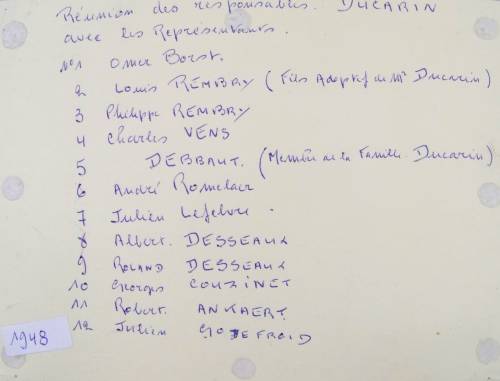 Réunion des responsables. DUCARIN
avec les Représentants.
N°1 Omer Borst.
2 Louis REMBRY (Fils Adoptif de Mr Ducarin)
3 Philippe REMBRY
4 Charles VENS
5 DEBBAUT. (Membre de la Famille Ducarin)
6 André Romelaer
7 Julien Lefebvre.
8 Albert. DESSEAUX
9 ROLAND DESSEAUX
10 Georges COUZINET
11 Robert. ANKAERT.
12 Julien GODEFROID
1948